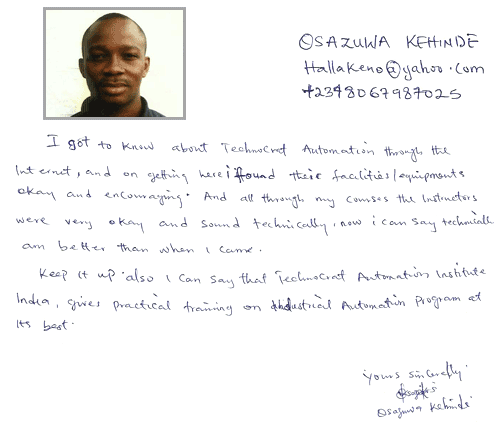 OSAZUWA KEHINDE
Hallakeno@yahoo.com
+2348067987025
I got to know about Technocrat Automation through the
Internet, and on getting here i found their facilities/equipments
okay and encouraging. And all through my courses the Instructors
were very okay and sound technically, now i can say technically
am better than when I came.
Keep it up. also I can say that Technocrat Automation Institute
India, gives practical training on Industrial Automation Program at
Its best.
Yours sincerely
Osazuwa Kehinde